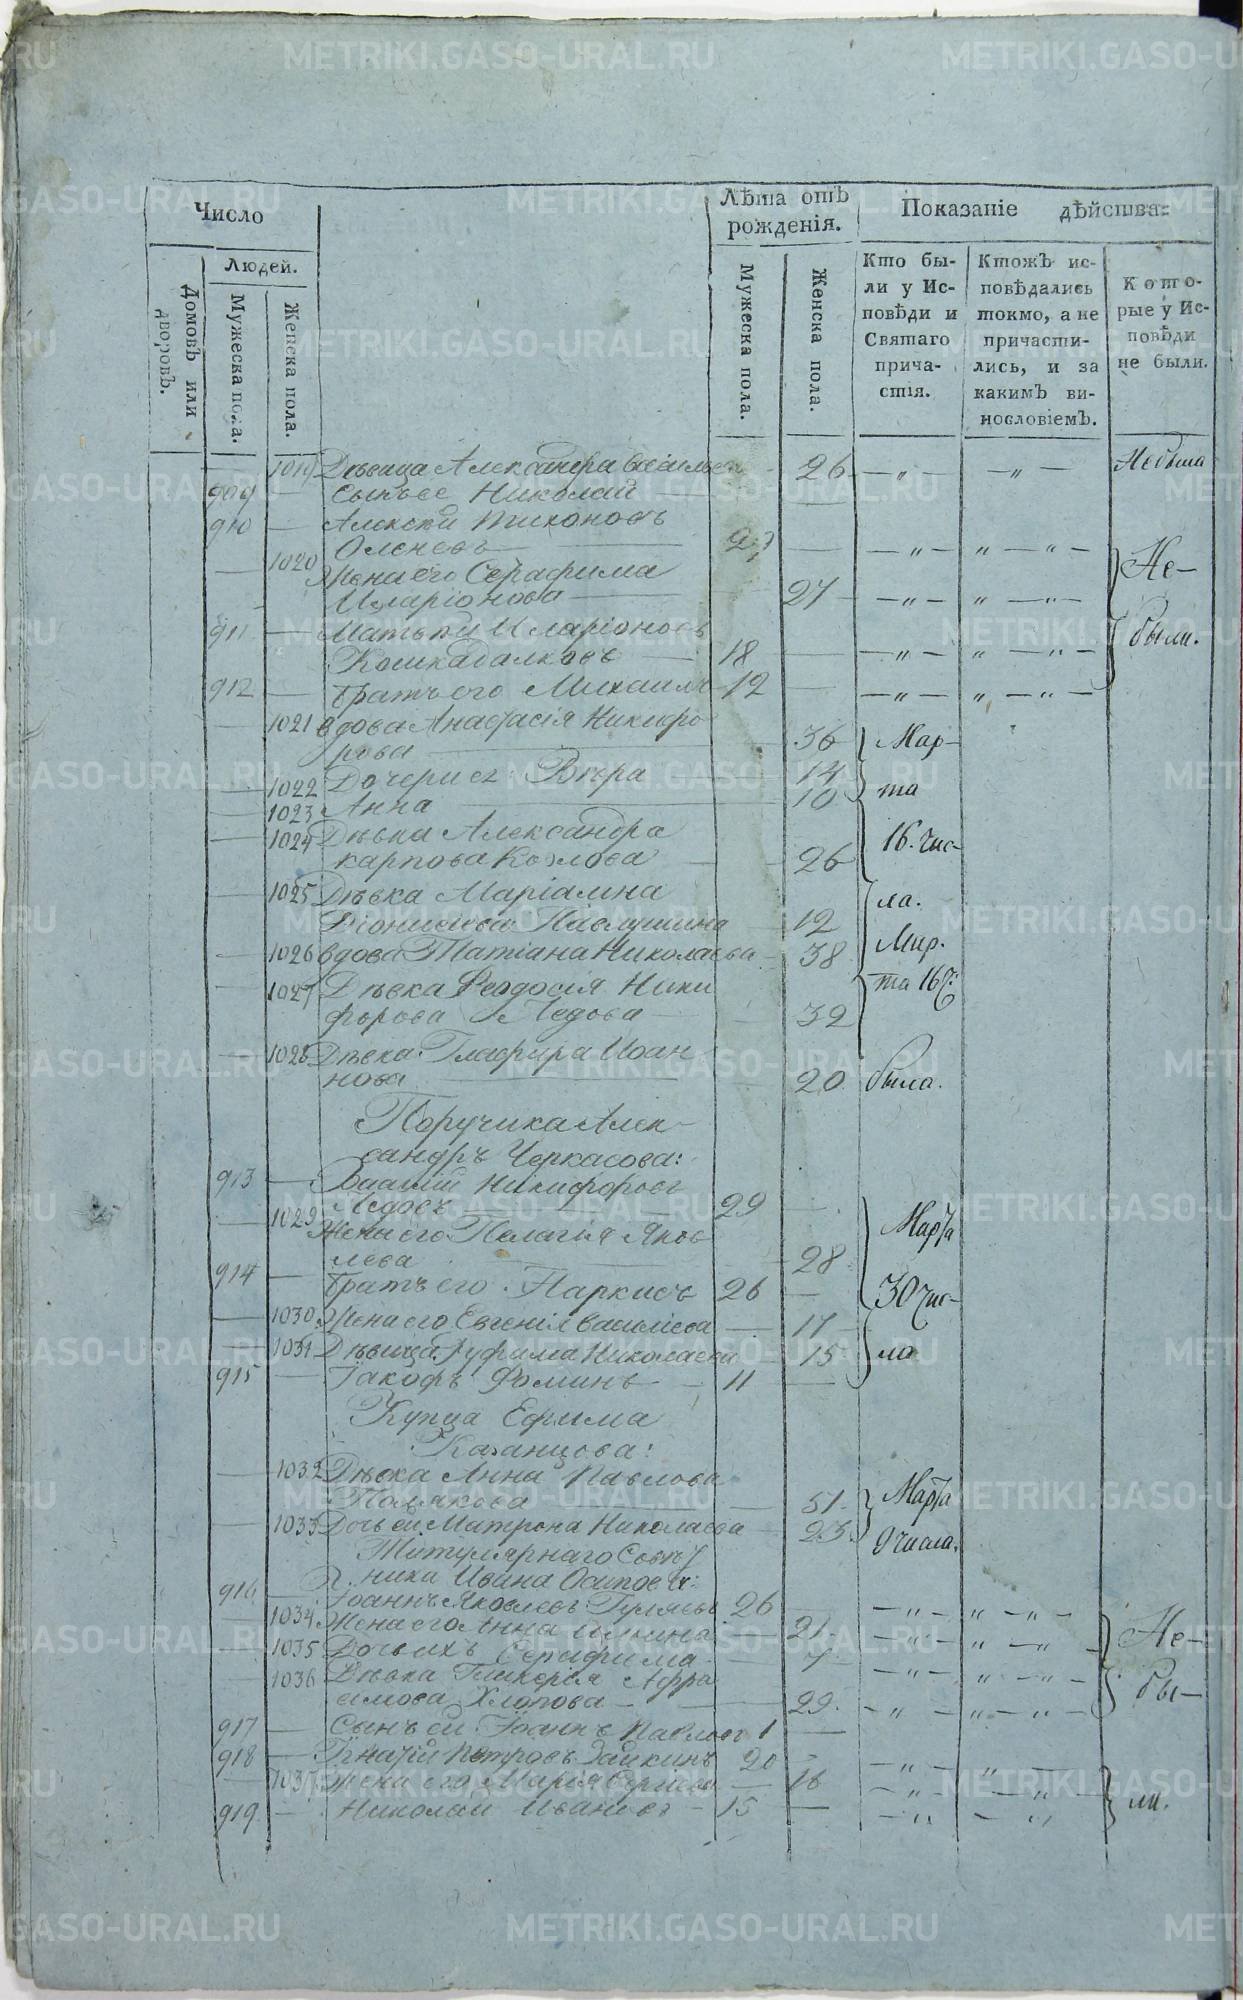 Число
Людей.
Домовъ или дворовъ.
Мужеска пола.
Женска пола.
Лѣта отъ рожденія.
Мужеска пола.
Женска пола.
Показаніе дѣйства:
Кто бы-
ли у Ис-
повѣди и
Святаго
прича-
стія.
Ктожъ ис-
повѣдались
токмо, а не
причасти-
лись, и за
какимъ ви-
нословіемъ.
Кото-
рые у Ис-
повѣди
не были.
1019 Дѣвица Александра Васильев 26 — „ — „ — Небыла
909 — Сынъ ее Николай —
910 — Алексѣй Тихоновъ
Оленевъ — — „ — „ — „ —
1020 Жена его Серафима
Иларіонова — 27 — „ — „ — „ — Не-
911 — Матвѣй Иларіоновъ
Кошкабалковъ — 18 — — „ — „ — „ — были.
912 — Братъ его Михаилъ — 12 — — „ — „ — „ —
1021 вдова Анастасія Никифо
рова — 36 Мар-
1022 Дочери ее: Вѣра 14
1023 Анна 10 та
1024 Дѣвка Александра
карпова Козлова — 26 16. Чис-
1025 Дѣвка Маріамна
Діонисіева Павлушина — 12 ла.
1026 вдова Татіана Николаева 38 Мар.
1027 Дѣвка Феодосія Ники
форова Ледова — 32 та 16 Ч.
1028 Дѣвка Глафира Иоан
нова — 20 была.
Поручика Алек-
сандръ Черкасова:
913 — Василій Никифоровъ
Ледовъ 29 — Марта
1029 Жена его Пелагія Яков
лева — 28
914 — Братъ его Наркисъ 26 — 30 чис-
1030 Жена его Евгенія Василіева — 17
1031 Дѣвица Руфима Николаева — 15 ла
915 — Іакофъ Фоминъ — 11 —
Купца Ефима
Казанцова:
1032 Дѣвка Анна Павлова
Полякова — 51. Марта
1033 Дочь ей Матрона Николаева — 23. 9 числа.
Титулярнаго Совѣт
ника Ивана Осипова:
916 — Іоаннъ Яковлевъ Гуляевъ 26 — — „ — „ — „ —
1034 Жена его Анна Ильина — 21 — „ — „ — „ — Не-
1035 Дочь ихъ Серафима — 7 — „ — „ — „ —
1036 Дѣвка Гликерія Афра
симова Хлопова — 29. — „ — „ — „ — бы-
917 — Сынъ ей Іоаннъ Павлов 1 —
918 — Игнатій Петровъ Зайкинъ 20 — — „ — „ —
1037 Жена его Марія — 16 — „ — „ — ли.
919. — Николай Ивановъ — 15 — — „ — „
METRIKI.GASO-URAL.RU